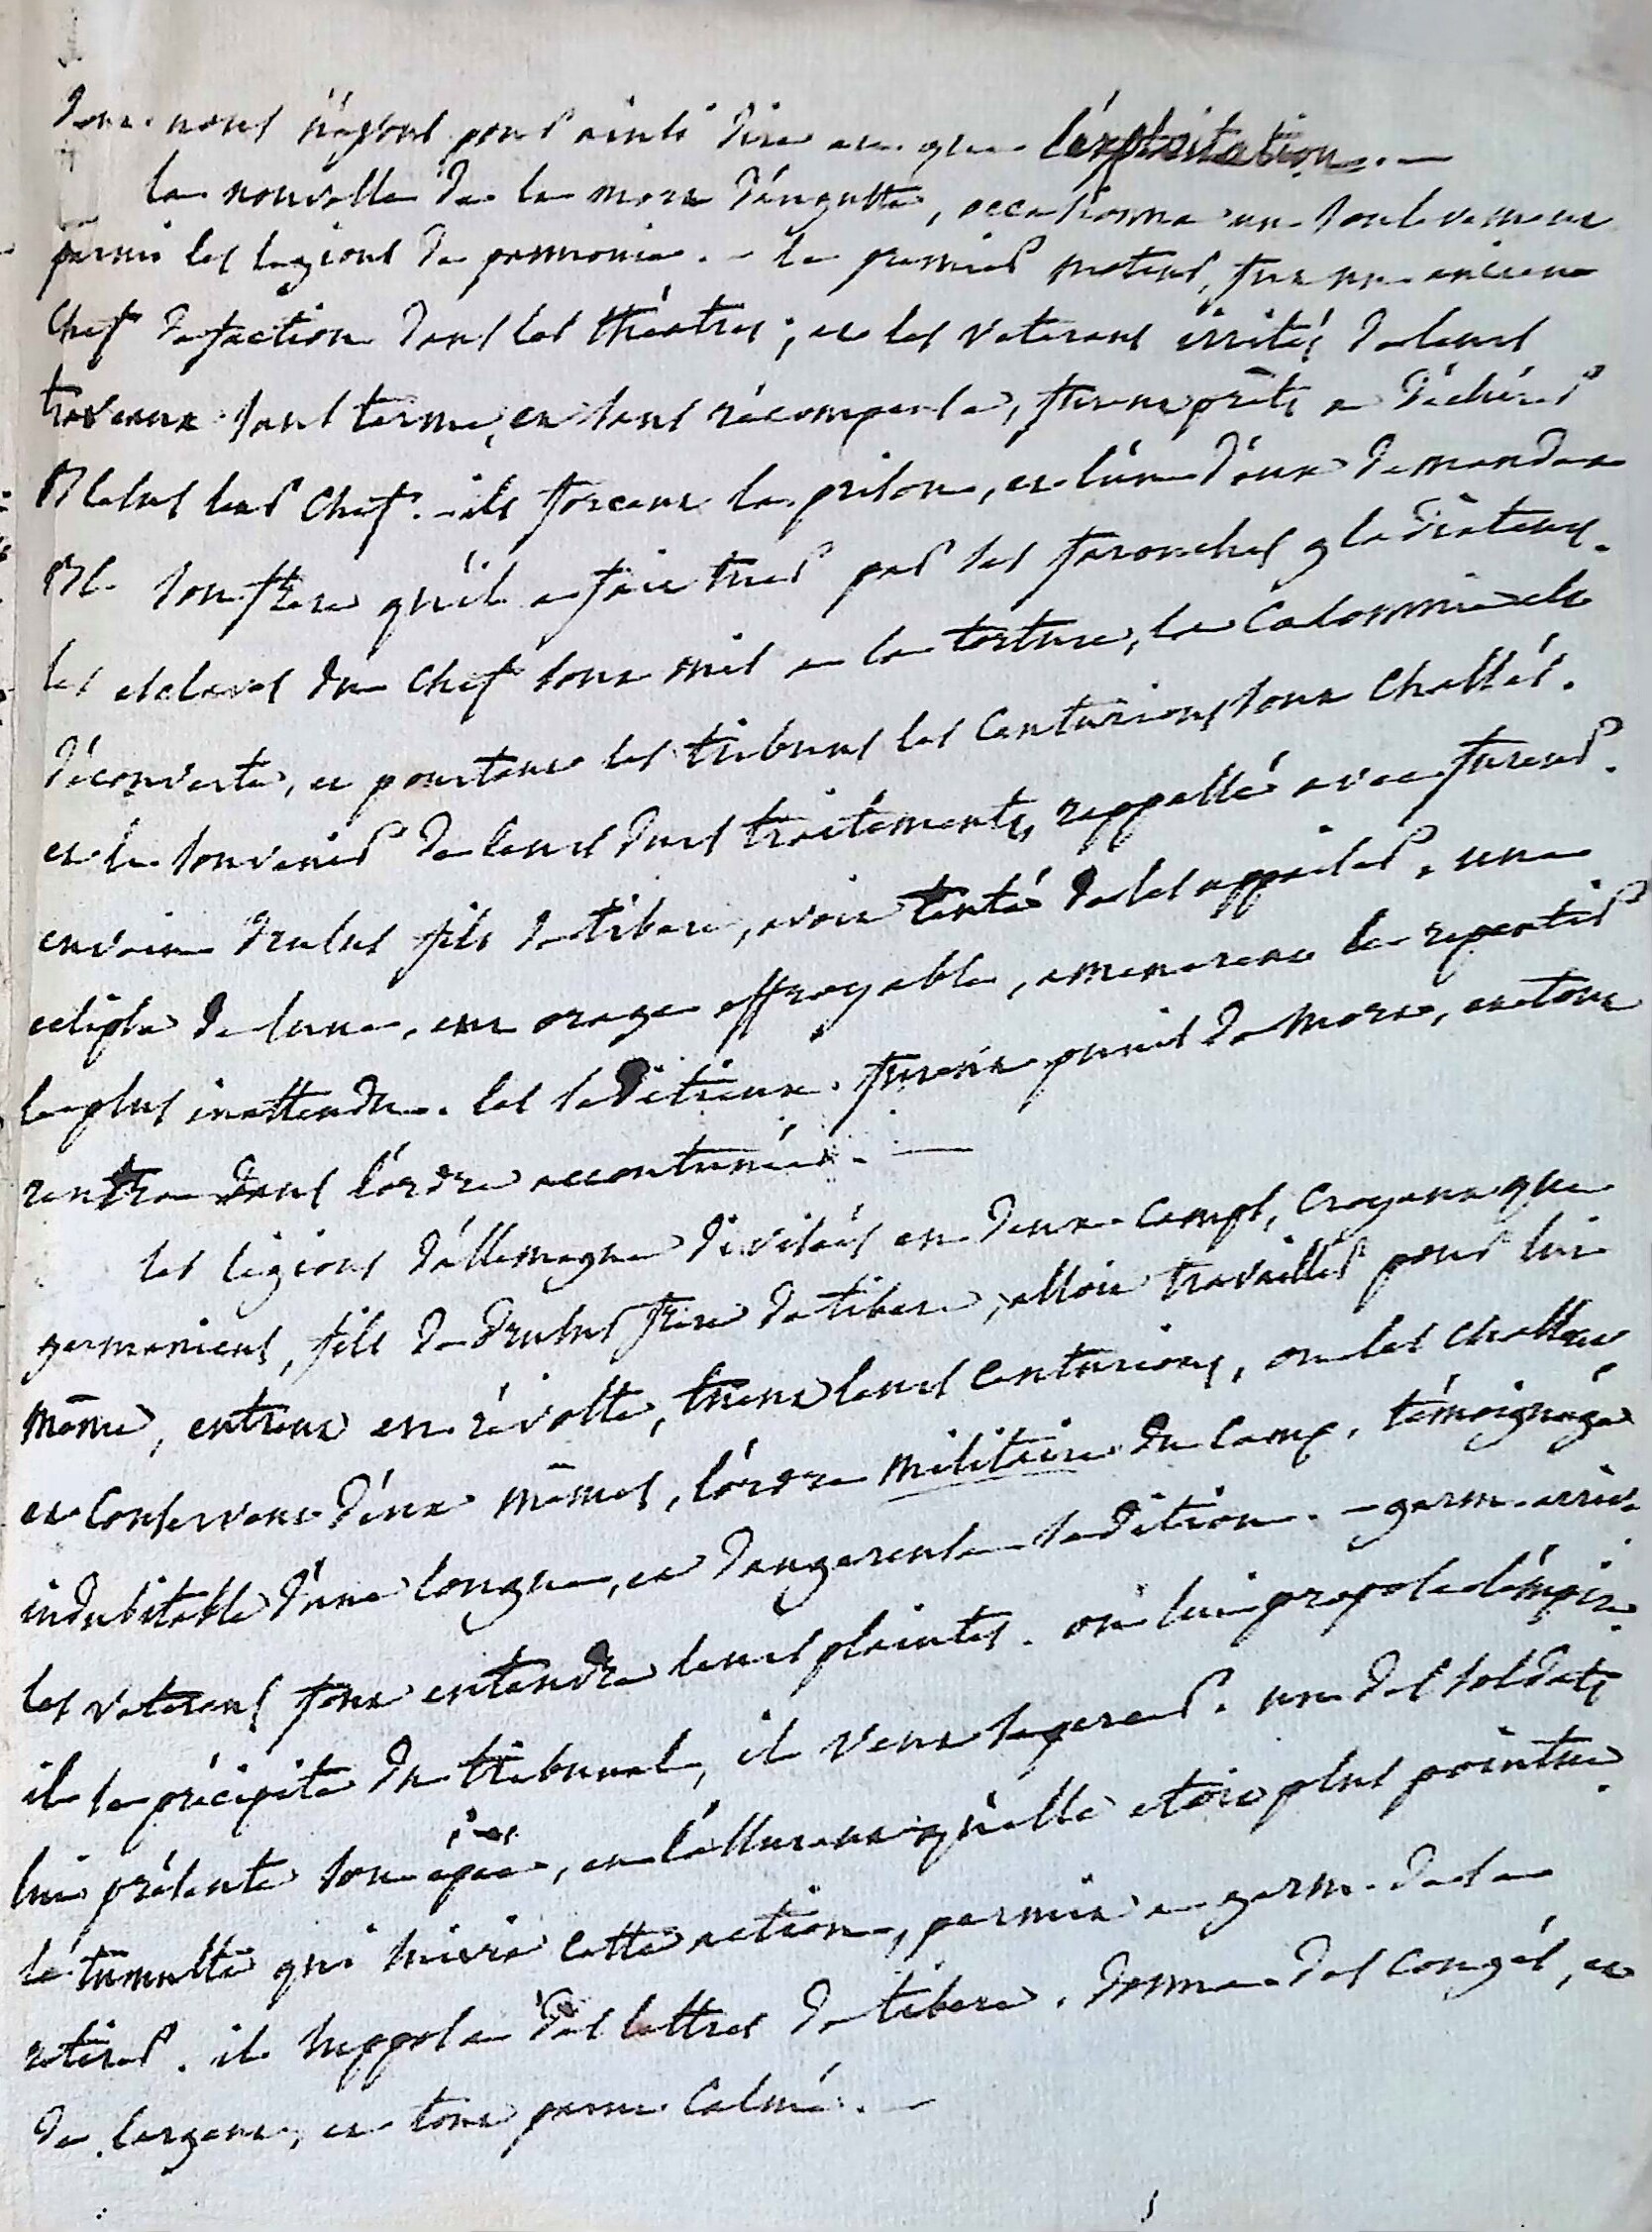 dont nous n'ayons pour ainsi dire eu que l'exploitation. —
la nouvelle de la mort d'auguste, occasionna un soulevement
parmi les legions de pannonie. - le premier moteur, fut un ancien
Chef de faction dans les théatres; et les veterans irrités de leurs
travaux sans terme, et sans récompense, furent prêts a déchirer
Blesus leur Chef. - ils forcent la prison, et l'un d'eux demande a
Bl. son frere qu'il a fait tuer par ses farouches gladiateurs.
les esclaves du chef sont mis a la torture, la Calomnie est
découverte, et pourtant les tribuns les Centurions sont chassés.
et le souvenir de leurs durs traitements, rappellé avec fureur.
envain drusus fils de tibere, avoit tenté de les appaiser. une
eclipse de lune, un orage effroyable, amenerent le repentir
le plus inattendu. les séditieux furent punis de mort, et tout
rentra dans l'ordre accoutumé. —
les légions d'allemagne divisées en deux camps, croyant que
germanicus, fils de drusus frere de tibere, alloit travailler pour lui
même, entrent en révolte, tuent leurs centurions, ou les chassent
et conservent d'eux mêmes, l'ordre militaire du camp, témoignage
indubitable d'une longue, et dangereuse sedition. - germ. arrive
les veterans font entendre leurs plaintes. on lui propose l'empire.
il se précipite du tribunal, il veut se percer. un des soldats
lui présente son épée, en l'assurant qu'elle etoit plus pointue.
le tumulte qui suivit cette action, permit a germ. de se
retirer. il suppose des lettres de tibere. donne des congés, et
de l'argent, et tout parut calmé. —